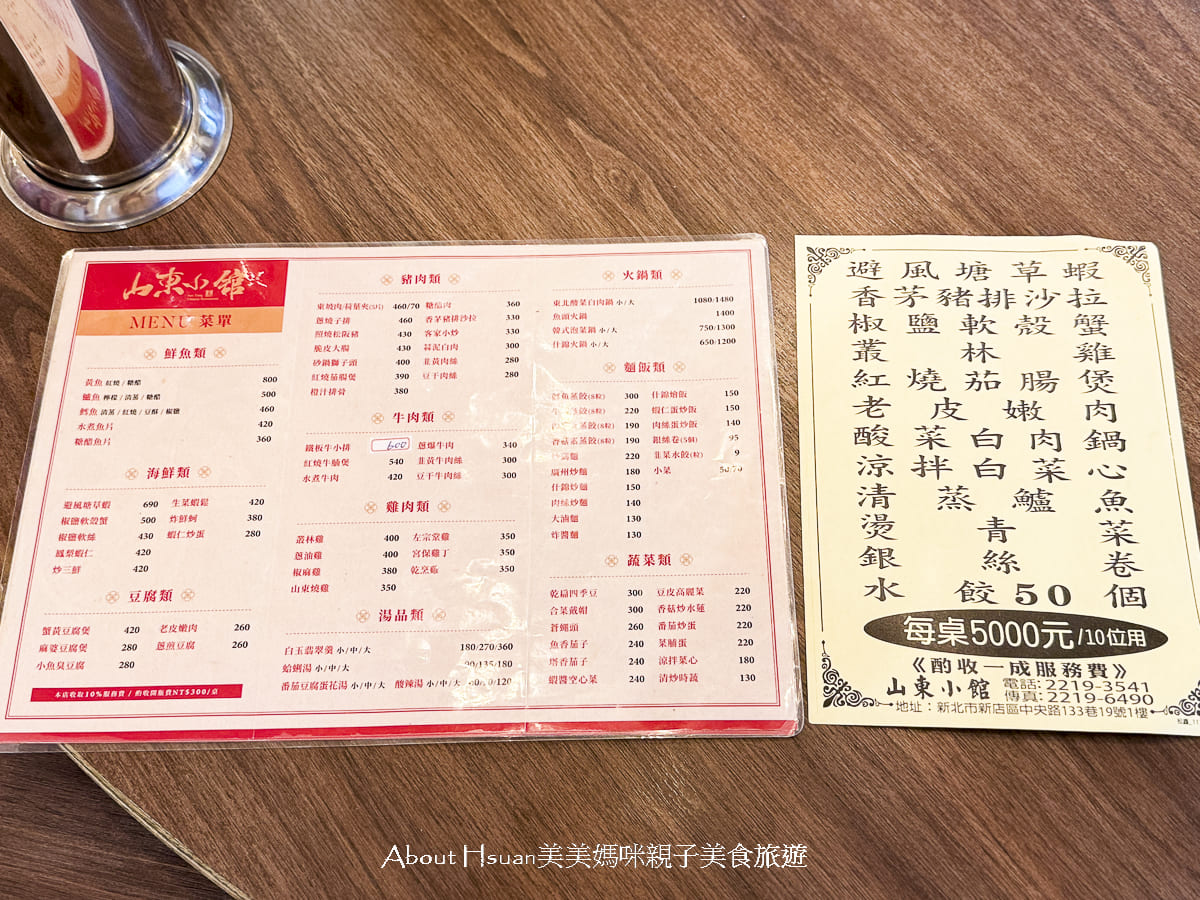 山東小館
MENU 菜單
鮮魚類
黃魚 紅燒/糖醋 800
鱸魚 檸檬/清蒸/糖醋 500
鱈魚 清蒸/紅燒/豆酥/椒鹽 460
水煮魚片 420
糖醋魚片 360
海鮮類
避風塘草蝦 690 生菜蝦鬆 420
椒鹽軟殼蟹 500 炸鮮蚵 380
椒鹽軟絲 430 蝦仁炒蛋 280
鳳梨蝦仁 420
炒三鮮 420
豆腐類
蟹黃豆腐煲 420 老皮嫩肉 260
麻婆豆腐煲 280 蔥煎豆腐 260
小魚臭豆腐 280
本店收取10%服務費 / 酌收開瓶費NT$300/桌
豬肉類
東坡肉/荷葉夾(5片) 460/70 糖醋肉 360
蔥燒子排 400 香茅豬排沙拉 330
照燒松阪豬 430 客家小炒 330
脆皮大腸 430 蒜泥白肉 300
砂鍋獅子頭 400 韭黃肉絲 280
紅燒茄腸煲 390 豆干肉絲 280
橙汁排骨 380
牛肉類
鐵板牛小排 600 蔥爆牛肉 340
紅燒牛腩煲 540 韭黃牛肉絲 300
水煮牛肉 420 豆干牛肉絲 300
雞肉類
叢林雞 400 左宗棠雞 350
蔥油雞 400 宮保雞丁 350
椒麻雞 380 乾烹雞 350
山東燒雞 350
湯品類
白玉翡翠羹 小/中/大 180/270/360
蛤蜊湯 小/中/大 90/135/180
番茄豆腐蛋花湯 小/中/大 酸辣湯 小/中/大 60/90/120
火鍋類
東北酸菜白肉鍋 小/大 1080/1480
魚頭火鍋 1400
韓式泡菜鍋 小/大 750/1300
什錦火鍋 小/大 650/1200
麵飯類
蒸餃(8粒) 300 什錦燴飯 150
蒸餃(8粒) 220 蝦仁蛋炒飯 150
蒸餃(8粒) 190 肉絲蛋炒飯 140
香菇素蒸餃(8粒) 190 銀絲卷(5個) 95
220 韭菜水餃(粒) 9
廣州炒麵 180 小菜 50/70
什錦炒麵 150
肉絲炒麵 140
大滷麵 130
炸醬麵 130
蔬菜類
乾扁四季豆 300 豆皮高麗菜 220
合菜戴帽 300 香菇炒水蓮 220
蒼蠅頭 260 番茄炒蛋 220
魚香茄子 240 菜脯蛋 220
塔香茄子 240 涼拌菜心 180
蝦醬空心菜 240 清炒時蔬 130
避風塘草蝦
香茅豬排沙拉
椒鹽軟殼蟹
叢林雞
紅燒茄腸煲
老皮嫩肉
酸菜白肉鍋
涼拌白菜心
清蒸鱸魚
燙青菜
銀絲卷
水餃50個
每桌5000元/10位用
《酌收一成服務費》
山東小館 電話:2219-3541
傳真:2219-6490
地址:新北市新店區中央路133巷19號1樓
About Hsuan美美媽咪親子美食旅遊